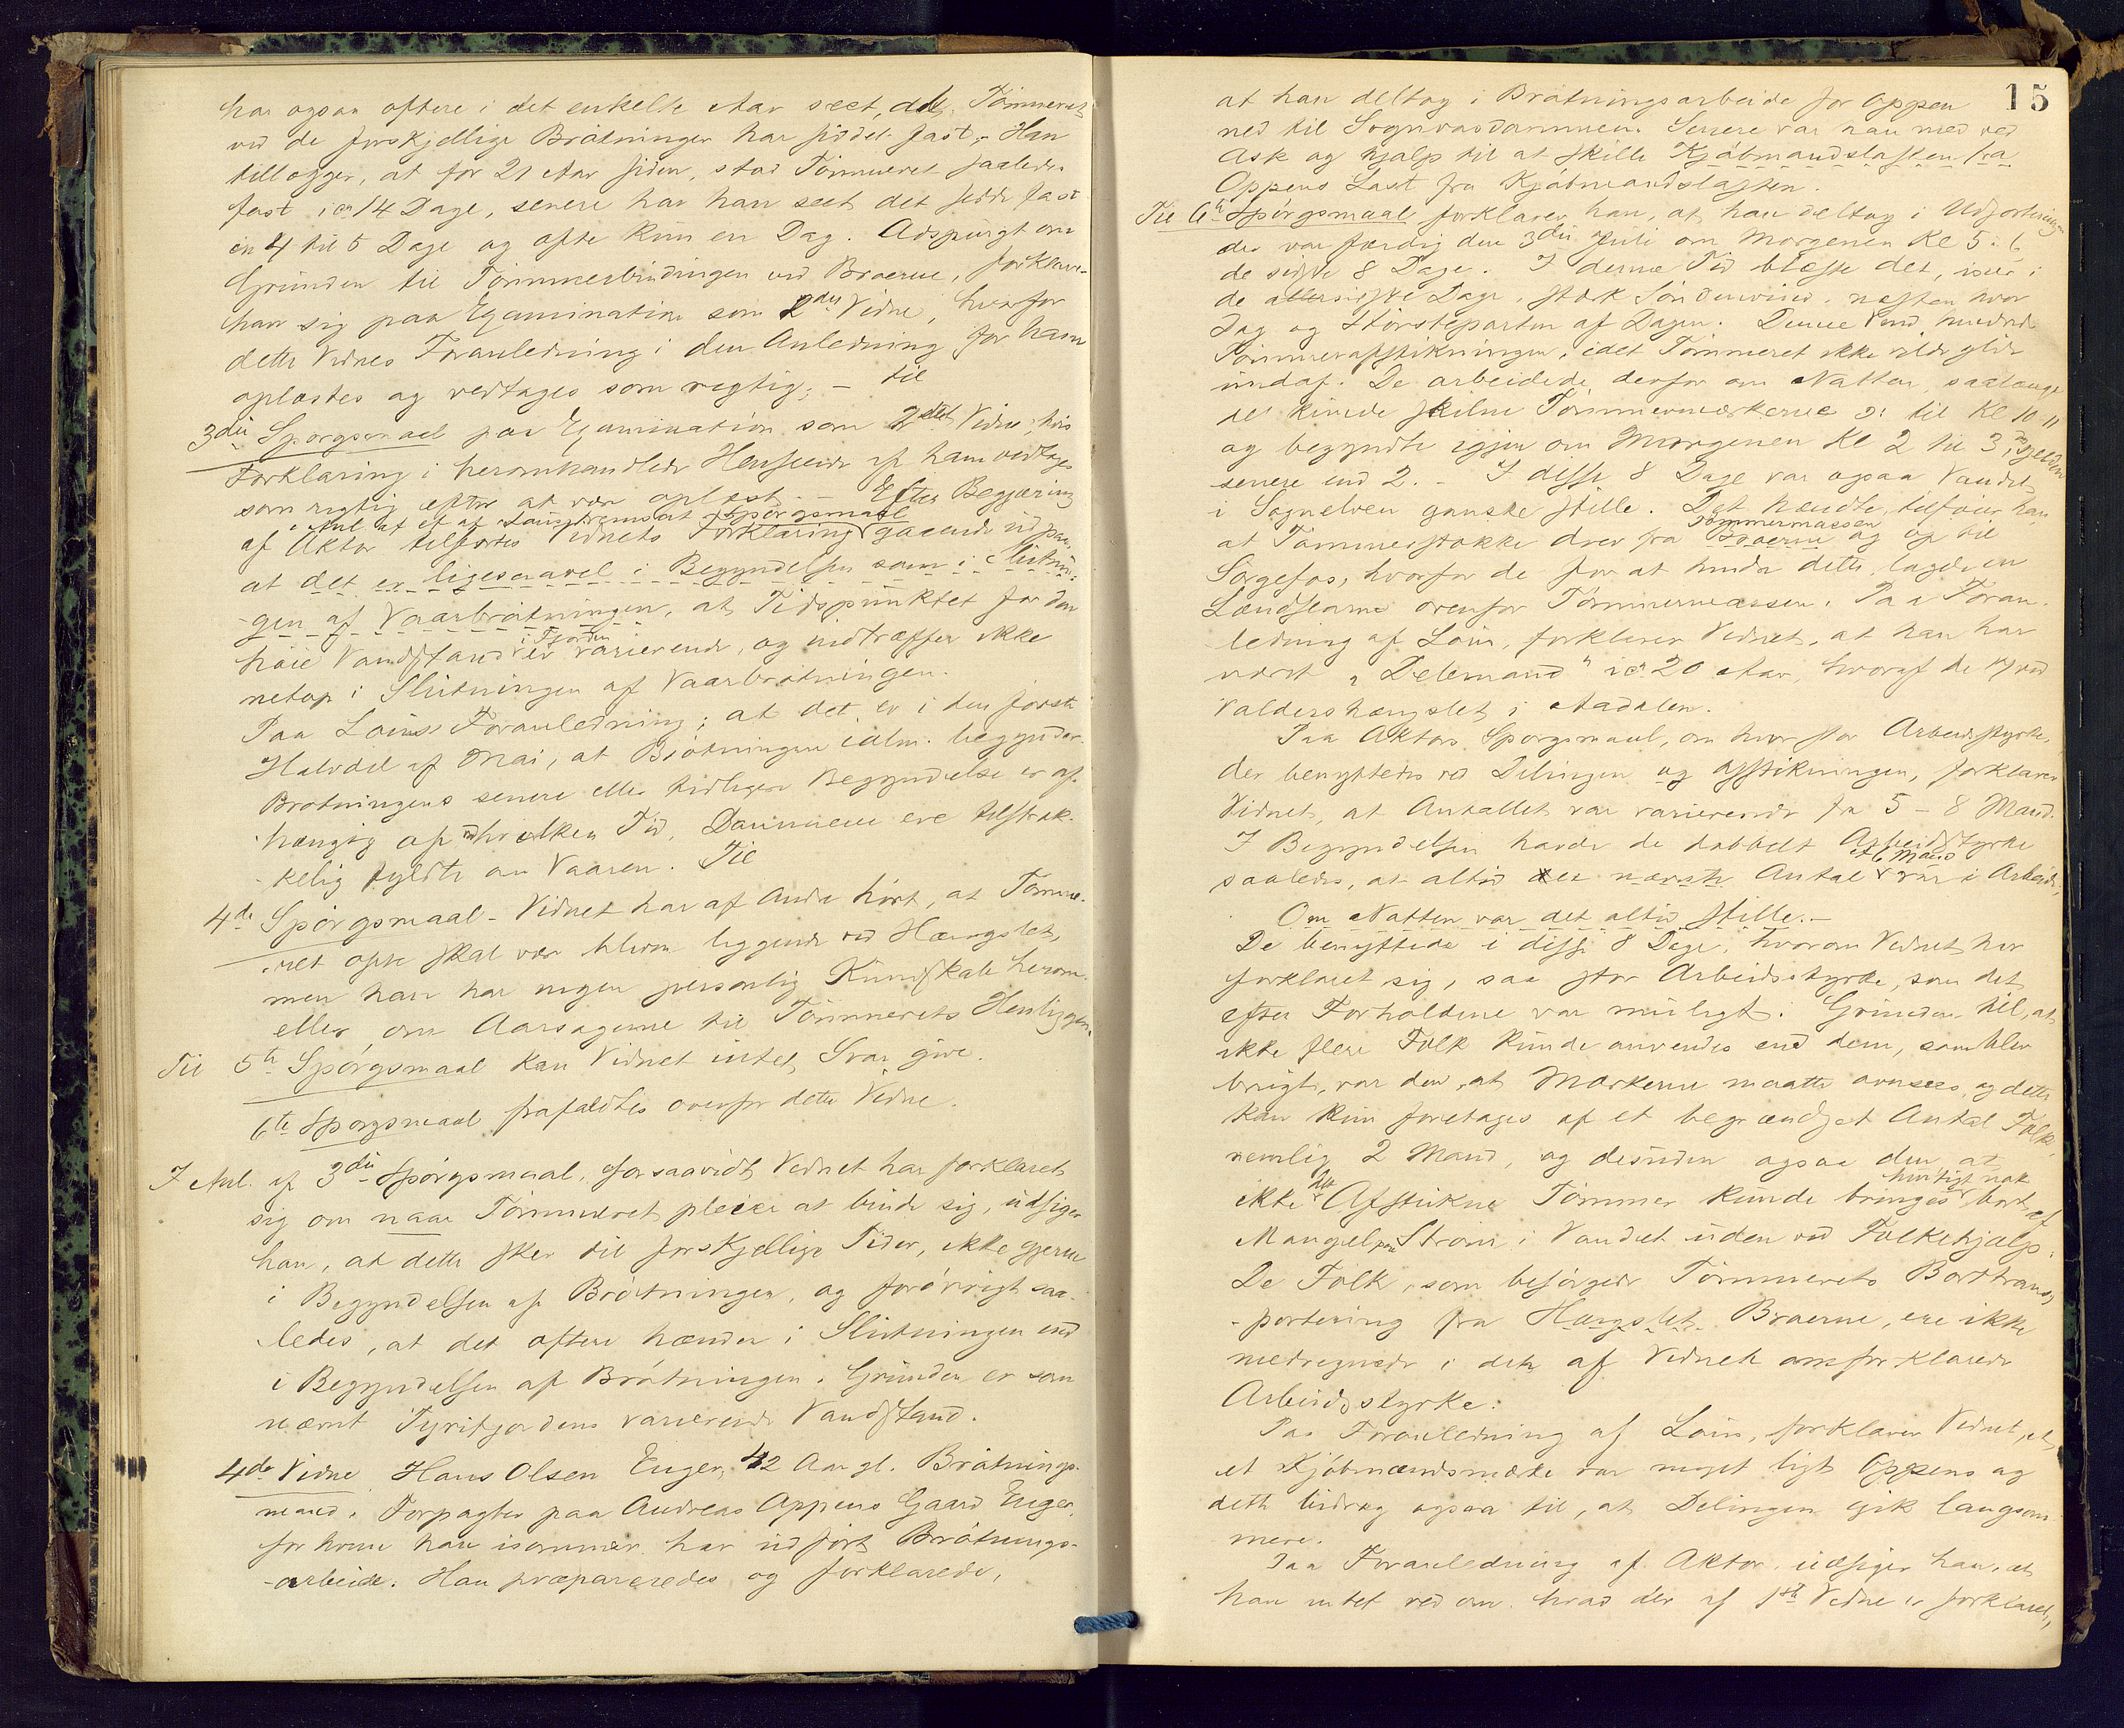 har ogsaa oftere i det enkelte Aar seet, at Tømmeret
ved de forskjellige Brøtninger har siddet fast; Han
tillægger, at for 21 Aar siden, stod Tømmeret saaledes
fast i ca 14 Dage, senere har han seet det sidde fast
en 4 til 5 Dage og ofte kun en Dag. Adspurgt om
Grunden til Tømmerbindingen ved Broerne, forklare-
han sig paa Examination som 2det Vidne, hvorfor
dette Vidnes Foranledning i den Anledning for ham
oplæstes og vedtages som rigtig; — til
3die Spørgsmaal paa Examination som 2det Vidne, hvis
Forklaring i heromhandlede Henseende af ham vedtages
som rigtig efter at være oplæst. — Efter Begjæring
i Anl. af et af Laugrettemat Spørgsmaal
af Aktor tilførtes Vidnets Forklaring gaaende ud paa,
at det er ligesaavel i Begyndelsen som i Slutnin-
gen af Vaarbrøtningen, at Tidspunktet for den
i Fjorden
høie Vandstand er varierende, og indtræffer ikke
netop i Slutningen af Vaarbrøtningen.
Paa Louis Foranledning; at det er i den første
Halvdel af Mai, at Brøtningen alm. begynder.
Brøtningens senere eller tidligere Begyndelse er af-
hængig af hvilken Tid, Dammene ere tilstræk-
kelig fyldte om Vaaren. Til
4de Spørgsmaal - Vidnet har af Andre hørt, at Tømme-
ret ofte skal være bleven liggende ved Hængslet,
men han har ingen personlig Kundskab herom
eller om Aarsagerne til Tømmerets Henliggen.
Til 5te Spørgsmaal kan Vidnet intet Svar give.
6te Spørgsmaal frafaldtes overfor dette Vidne.
I Anl. af 3die Spørgsmaal, forsaavidt Vidnet har forklaret
sig om naar Tømmeret pleier at binde sig, udsiger
han, at dette sker til forskjellige Tider, ikke gjerne
i Begyndelsen af Brøtningen, og forøvrigt saa-
ledes, at det oftere hænder i Slutningen end
i Begyndelsen af Brøtningen. Grunden er som
nævnt Tyrifjordens varierende Vandstand.
4de Vidne Hans Olsen Enger, 42 Aar gl. Brøtnings-
mand, Forpagter paa Andreas Oppens Gaard Enger,
for hvem han isommer har udført Brøtnings-
arbeide. Han præpareredes og forklarede,
15
at han deltog i Brøtningsarbeide for Oppen
ned til Sognvasdammen. Senere var han med ved
Ask og hjalp til at skille Kjøbmandslasten fra
Oppens Last fra Kjøbmandslasten.
Til 6te Spørgsmaal forklarer han, at han deltog i Udsorteringen
der var færdig den 3die Juli om Morgenen Kl 5 a 6
de sidste 8 Dage. I denne Tid blæste det, især i
de allersidste Dage, stærk Søndenvind, næsten hver
Dag og Størsteparten af Dagen. Denne Vind hindrede
Tømmerafstikningen, idet Tømmeret ikke vilde glide
undaf. De arbeidede derfor om Natten saalænge
de kunde skilne Tømmermærkerne ɔ: til Kl 10 - 11
og begyndte igjen om Morgenen Kl 2 til 3, sjelden
senere end 2. - I disse 8 Dage var ogsaa Vandet
i Sognelven ganske stille. Det hændte, tilføier han
Tømmermassen
at Tømmerstokke drev fra Broerne og op til
Sørgefos, hvorfor de for at hindre dette lagde en
Landslændse ovenfor Tømmermassen. Paa Foran-
ledning af Louis, forklarer Vidnet, at han har
været „Delemand" i ca 20 Aar, hvoraf de 17 ved
Valdershængslet i Aadalen.
Paa Aktors Spørgsmaal, om hvor stor Arbeidsstyrke,
der benyttedes ved Delingen og Afstikningen, forklarer
Vidnet, at Antallet var varierende fra 5 - 8 Mand.
I Begyndelsen havde de dobbelt Arbeidsstyrke
af 6 Mand
saaledes, at altid det nævnte Antal var i Arbeide,
Om Natten var det altid stille. —
De benyttede i disse 8 Dage, hvorom Vidnet har
forklaret sig, saa stor Arbeidsstyrke, som det
efter Forholdene var muligt. Grunden til, at
ikke flere Folk kunde anvendes end dem, som blev
brugt, var den, at Mærkerne maatte oversees, og dette
kan kun foretages af et begrændset Antal Folk,
nemlig 2 Mand, og desuden ogsaa den at
det hurtigt nok
ikke Afstukne Tømmer kunde bringes bort af
Mangel paa Strøm i Vandet uden ved Folkehjælp.
De Folk, som besørgede Tømmerets Borttrans-
portering fra Hængslet, Broerne, ere ikke
medregnede i den af Vidnet omforklarede
Arbeidsstyrke.
Paa Foranledning af Louis, forklarer Vidnet, at
et Kjøbmandsmærke var meget ligt Oppens og
dette bidrog ogsaa til, at Delingen gik langsom-
mere.
Paa Foranledning af Aktor, udsiger han, at
han intet ved om hvad der af 1ste Vidne er forklaret,